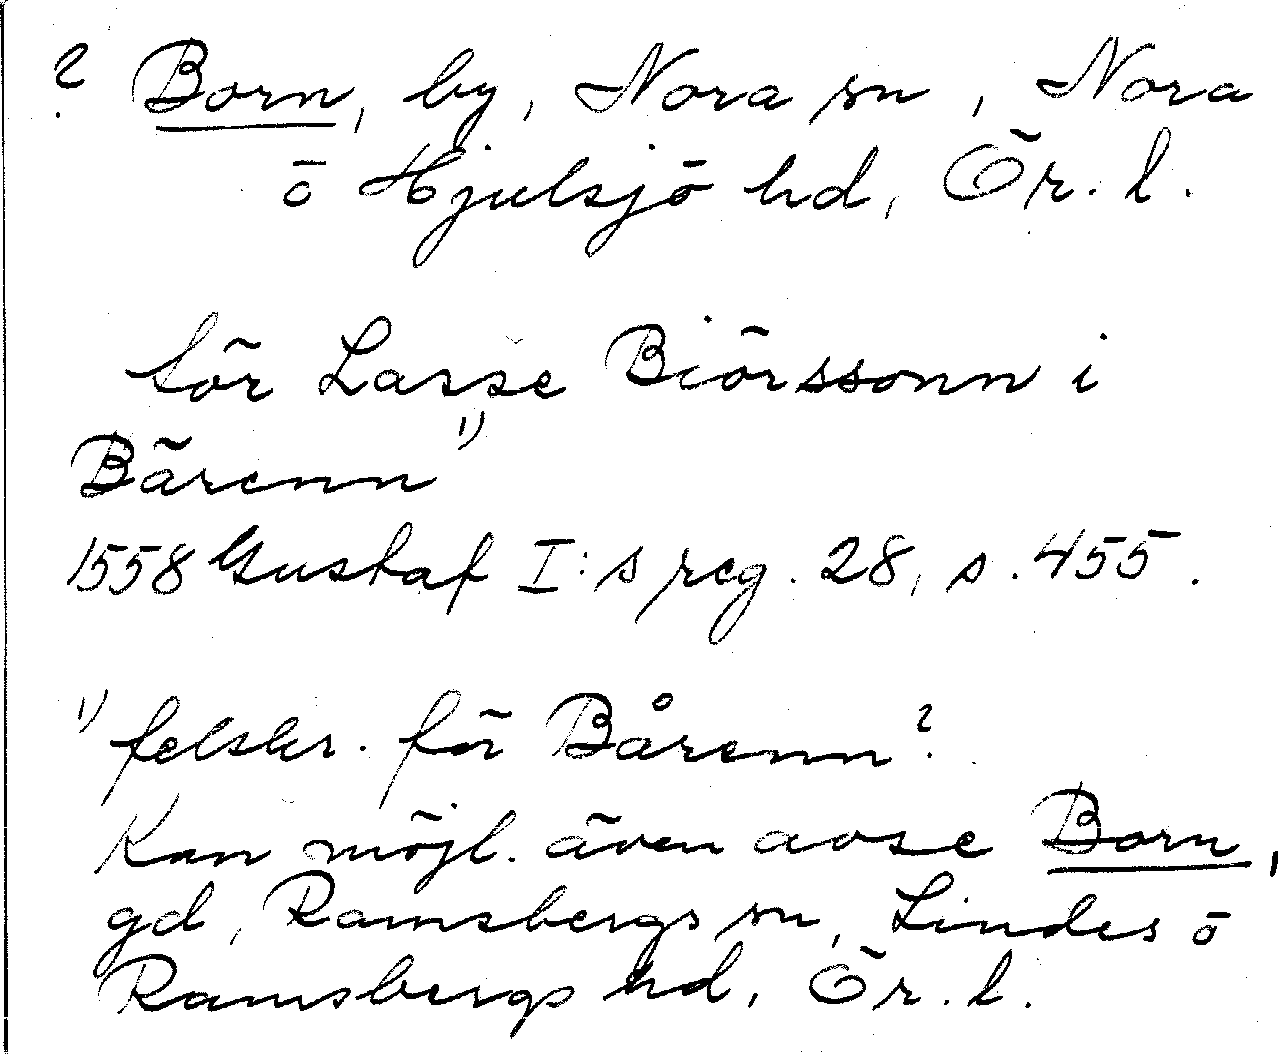 ? Born, by, Nora sn, Nora
ö Hjulsjö hd, Ör. l.
för Lasse Biörssonn i
Bärenn 1)
1558 Gustaf I:s reg. 28, s. 455.
1) felskr. för Bårenn?
Kan möjl. även avse Born,
gd, Ramsbergs sn, Lindes ö
Ramsbergs hd, Ör. l.